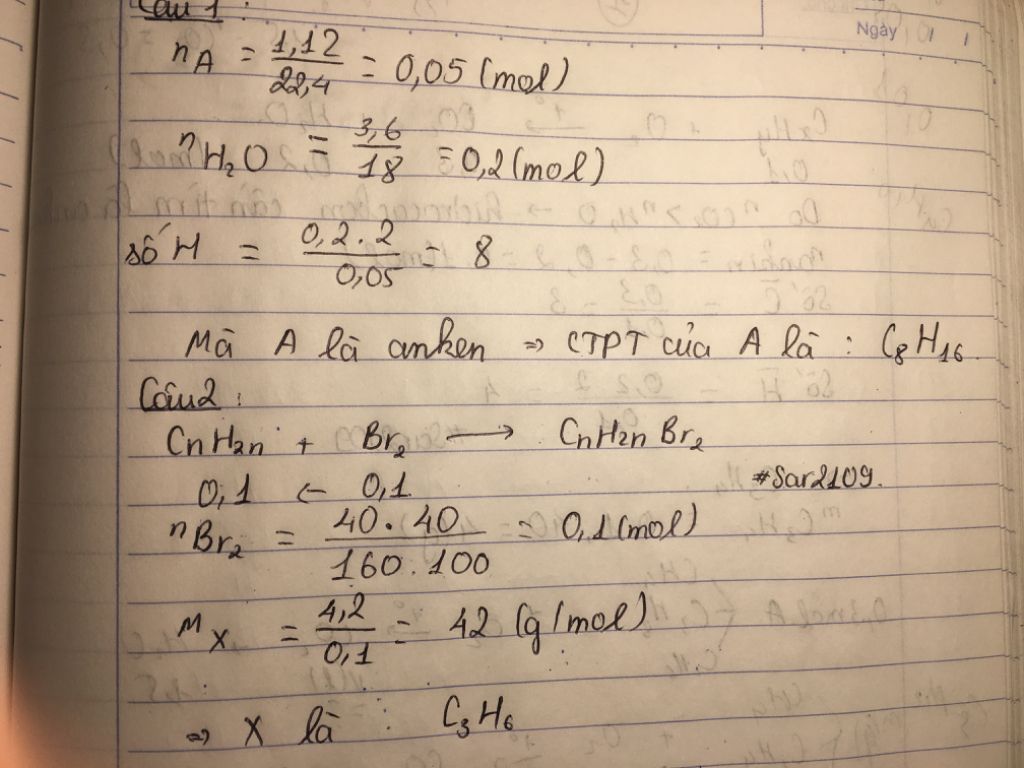 Câu 1 :
Ngày / /
nA = 1,12/22,4 = 0,05 (mol)
nH₂O = 3,6/18 = 0,2 (mol)
số H = 0,2.2/0,05 = 8
Mà A là anken => CTPT của A là : C₈H₁₆.
Câu 2 :
CnH2n + Br₂ → CnH2nBr₂
#Sar2109.
0,1 ← 0,1
nBr₂ = 40.40/160.100 = 0,1 (mol)
Mx = 4,2/0,1 = 42 (g/mol)
=> X là : C₃H₆